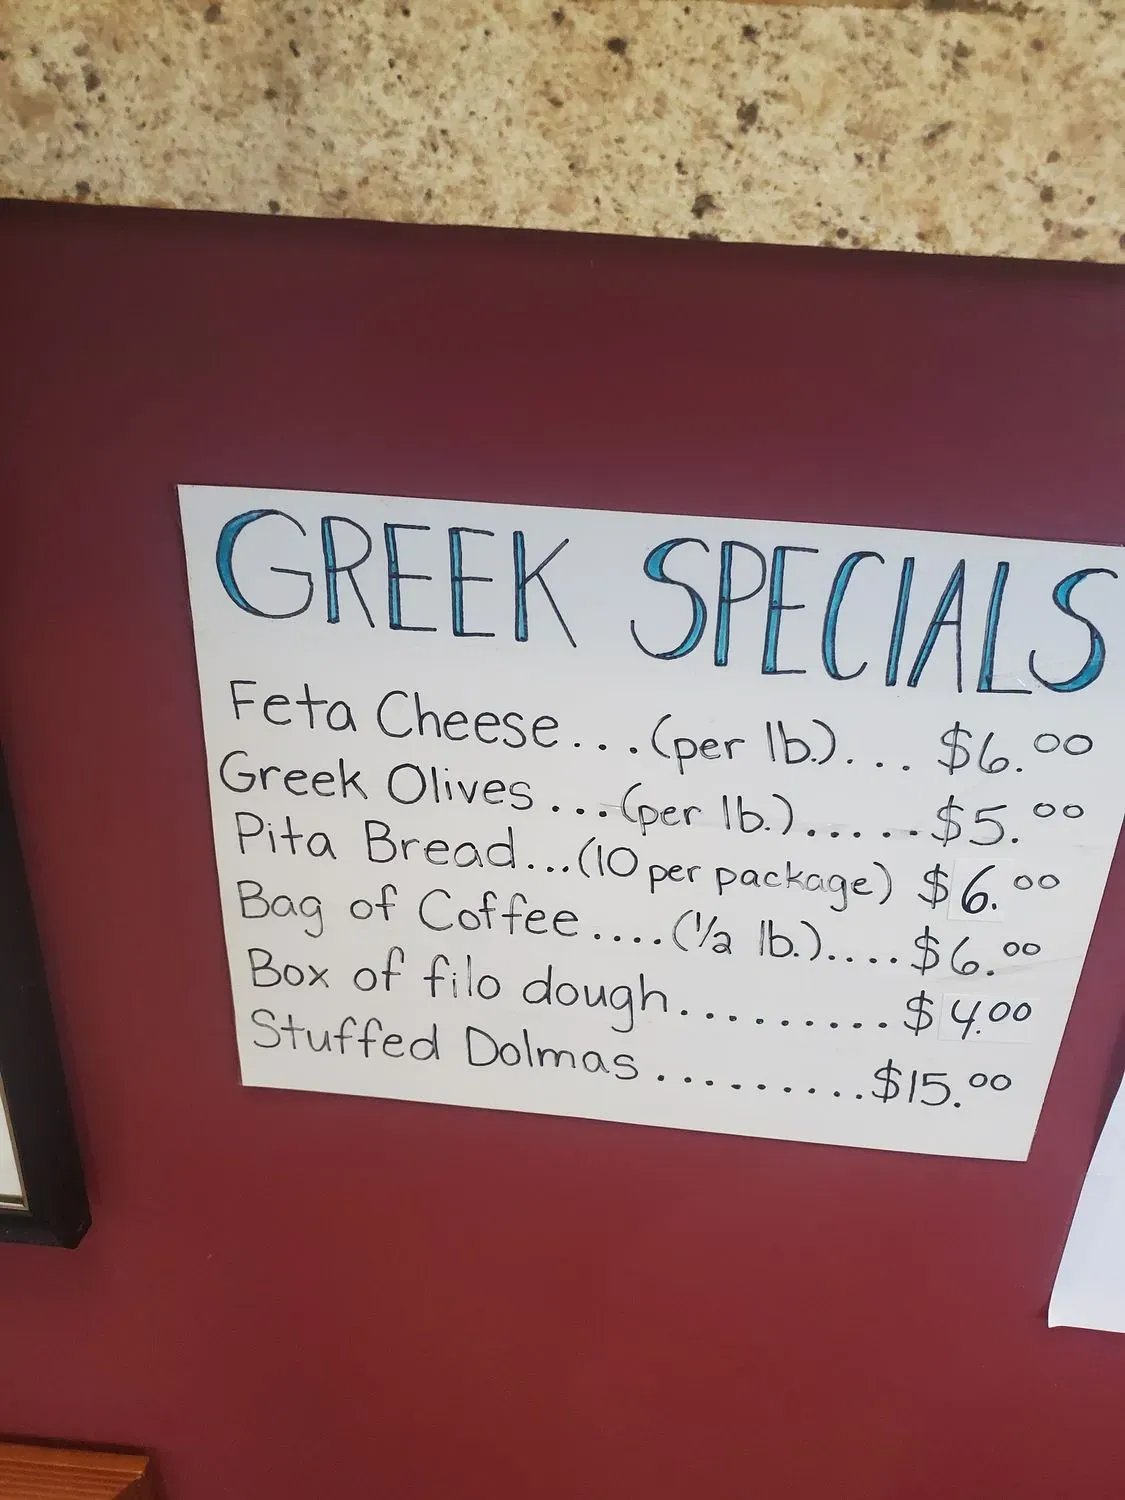 GREEK SPECIALS
Feta Cheese...(per lb.)... $6.00
Greek Olives...(per lb.).....$5.00
Pita Bread...(10 per package) $6.00
Bag of Coffee....(1/2 lb.)....$6.00
Box of filo dough.......... $4.00
Stuffed Dolmas..........$15.00